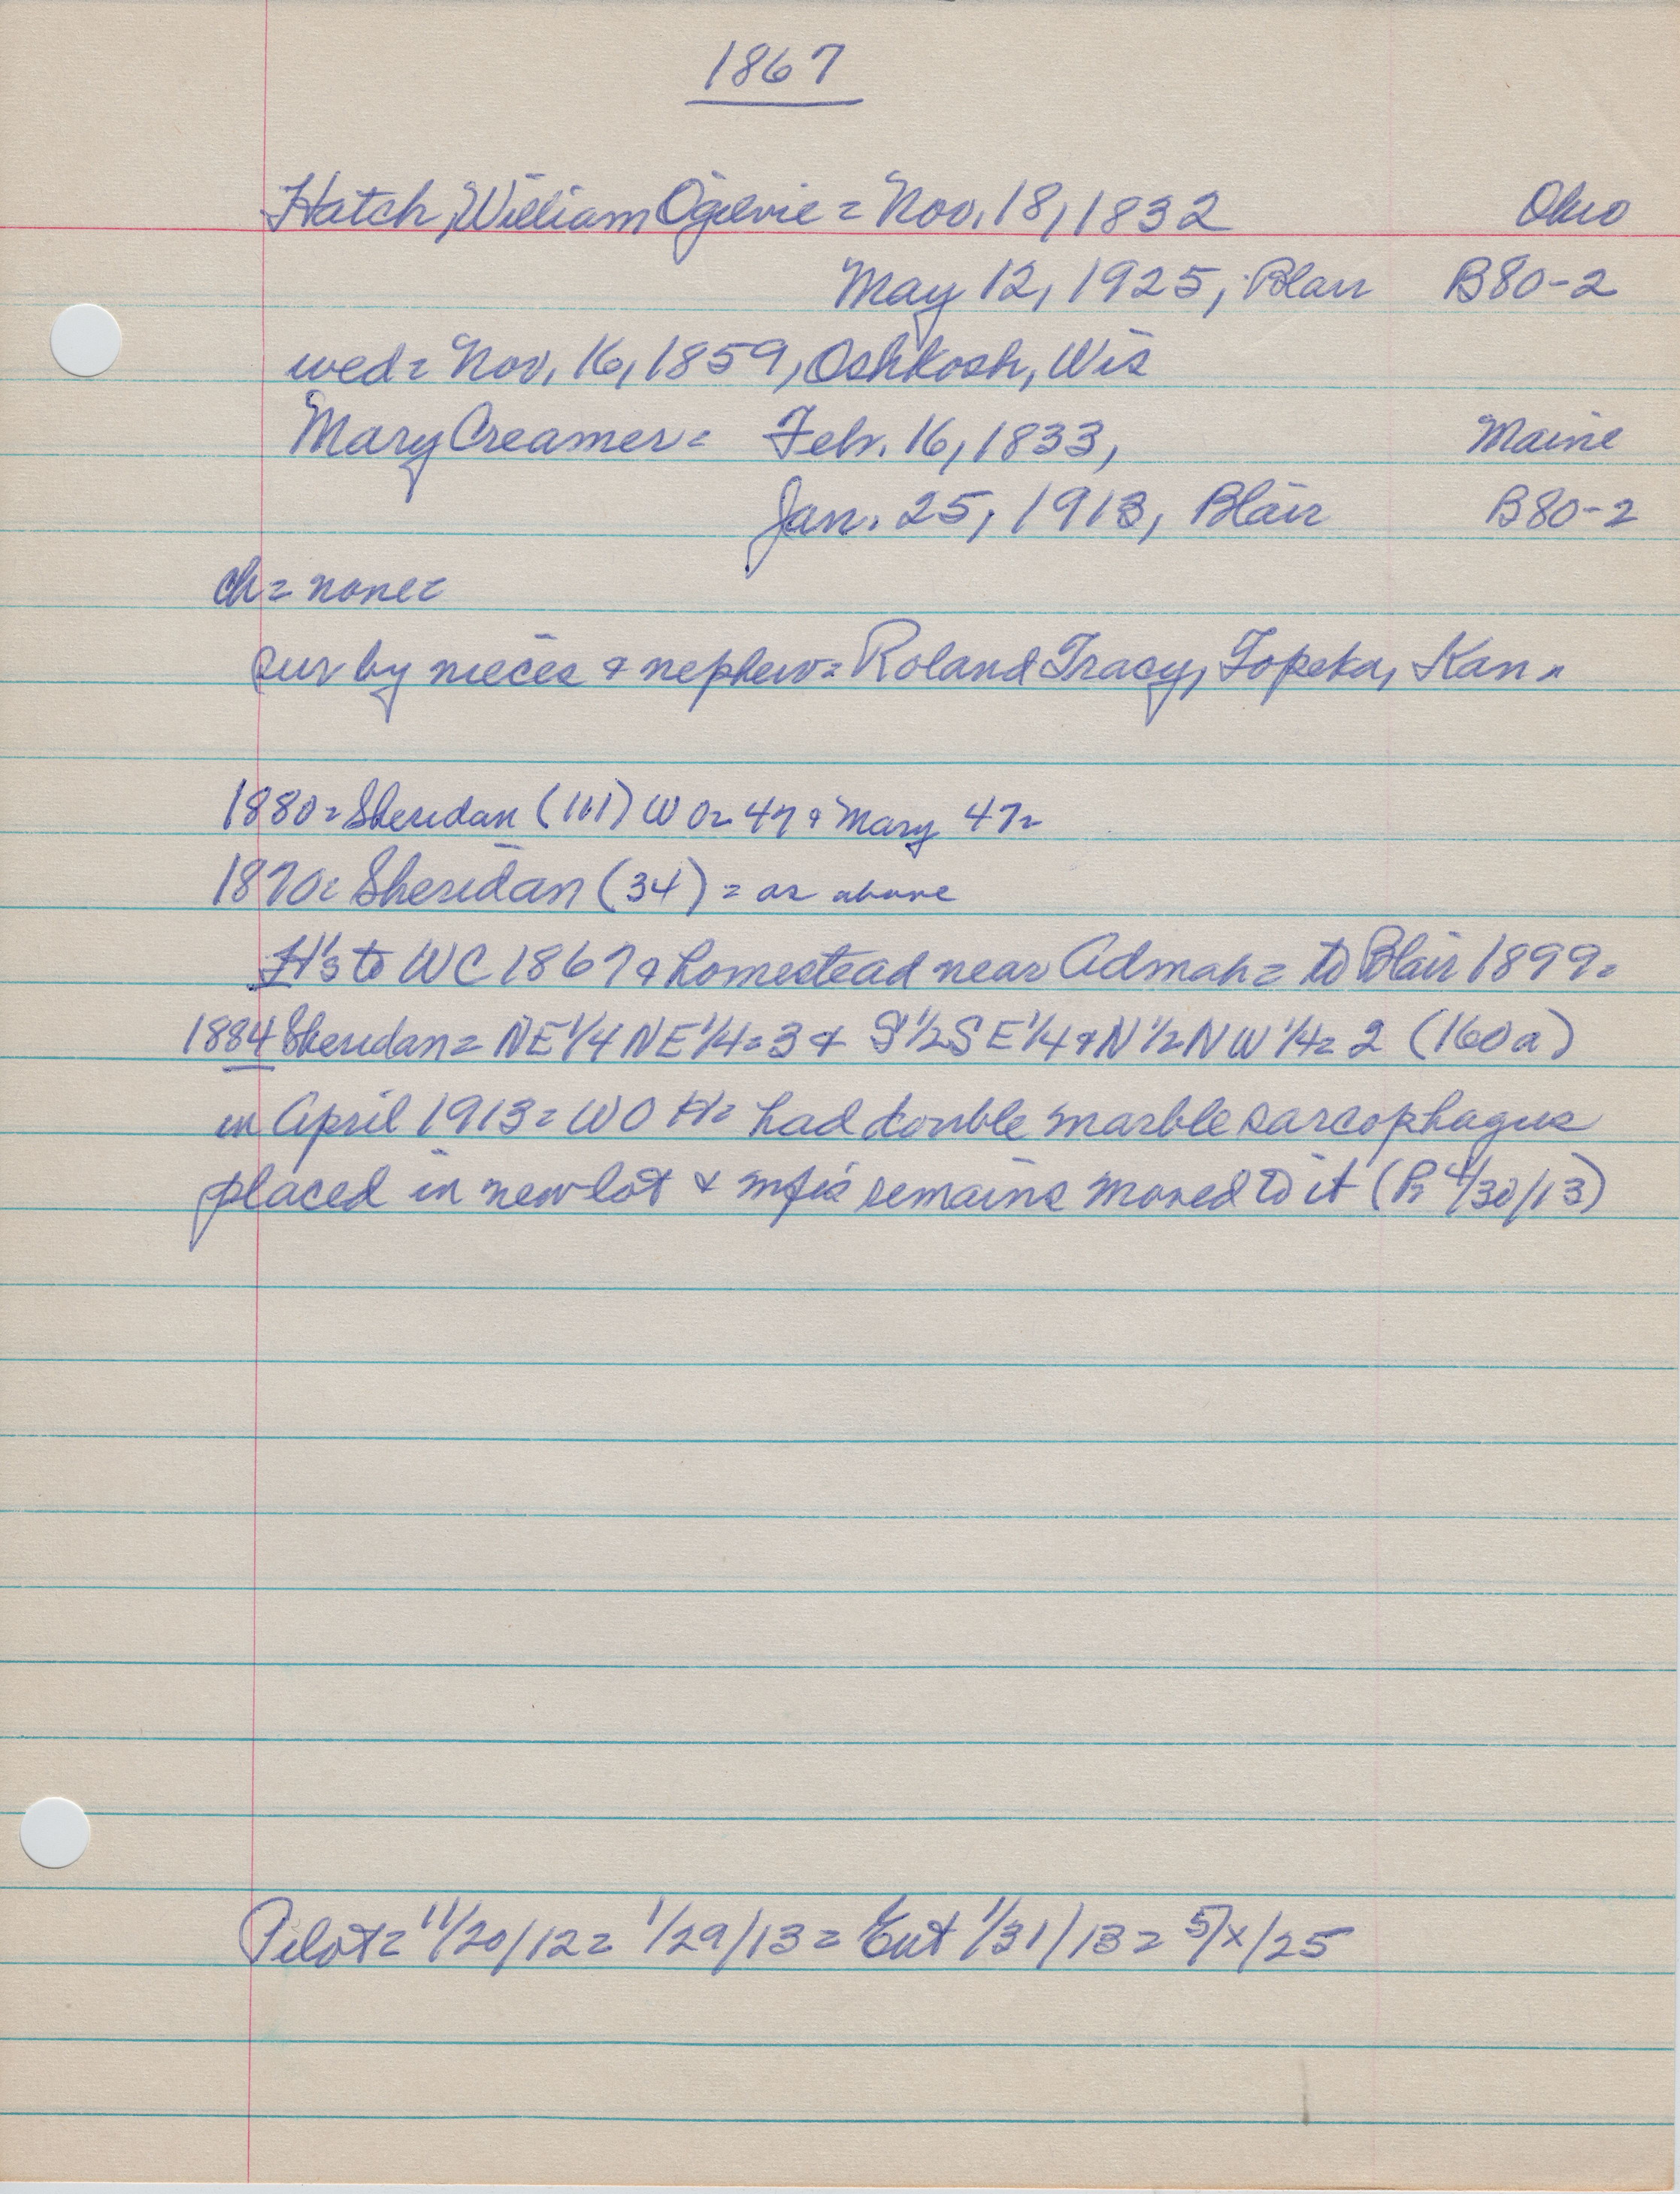 1867
Hatch, William Ogilvie = Nov. 18, 1832 Ohio
May 12, 1925, Blair B80-2
wed = Nov. 16, 1859, Oshkosh, Wis
Mary Creamer = Feb. 16, 1833, Maine
Jan. 25, 1913, Blair B80-2
ch = none =
sur by nieces & nephew = Roland Tracy, Topeka, Kan =
1880 = Sheridan (101) WO = 47 & Mary 47 =
1870 = Sheridan (34) = as above
H's to WC 1867 & homestead near Admah = to Blair 1899 =
1884 Sheridan = NE 1/4 NE 1/4 = 3 & S 1/2 SE 1/4 & N 1/2 NW 1/4 = 2 (160 a)
in April 1913 = WO H = had double marble sarcophagus
placed in new lot & remains moved to it (4/30/13)
Pilot = 11/20/12 = 1/29/13 = Ent 1/31/13 = 5/x/25